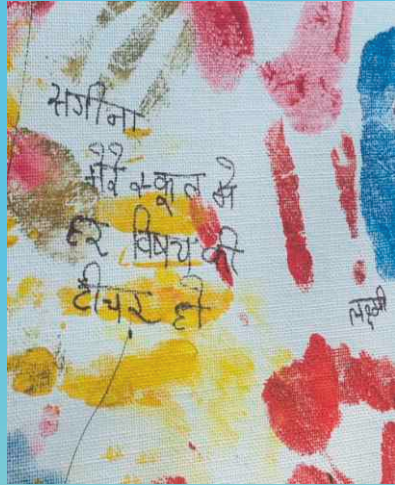 सगीना
मेरे स्कूल मे
हर विषय की
टीचर हो
लक्ष्मी